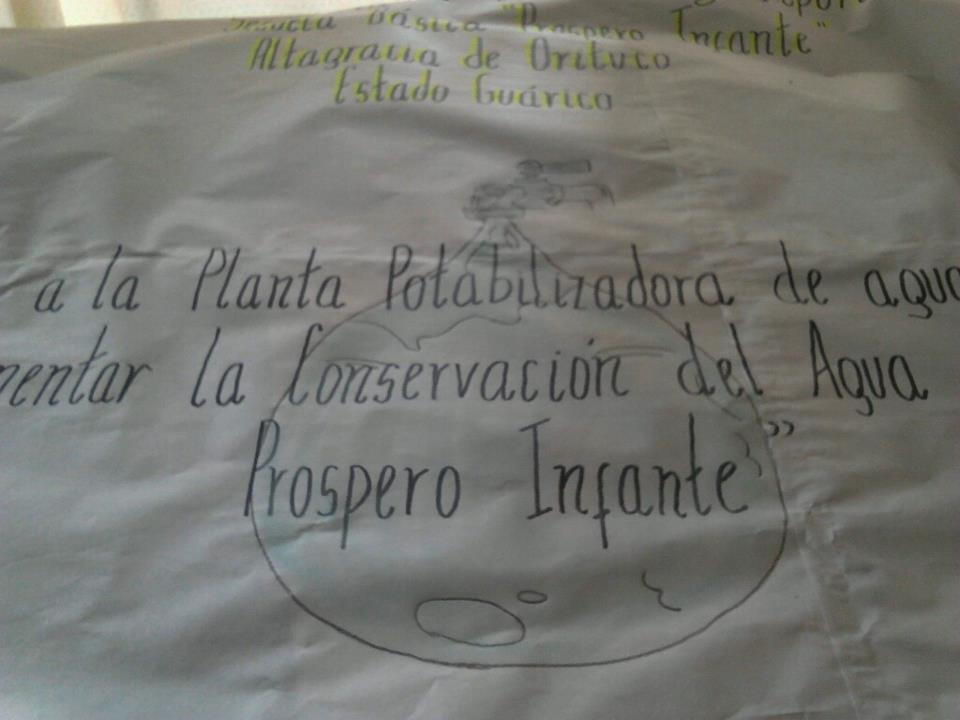 Básica "Prospero Infante"
Altagracia de Orituco
Estado Guárico
a la Planta Potabilizadora de agua
mentar la Conservación del Agua
Prospero Infante"